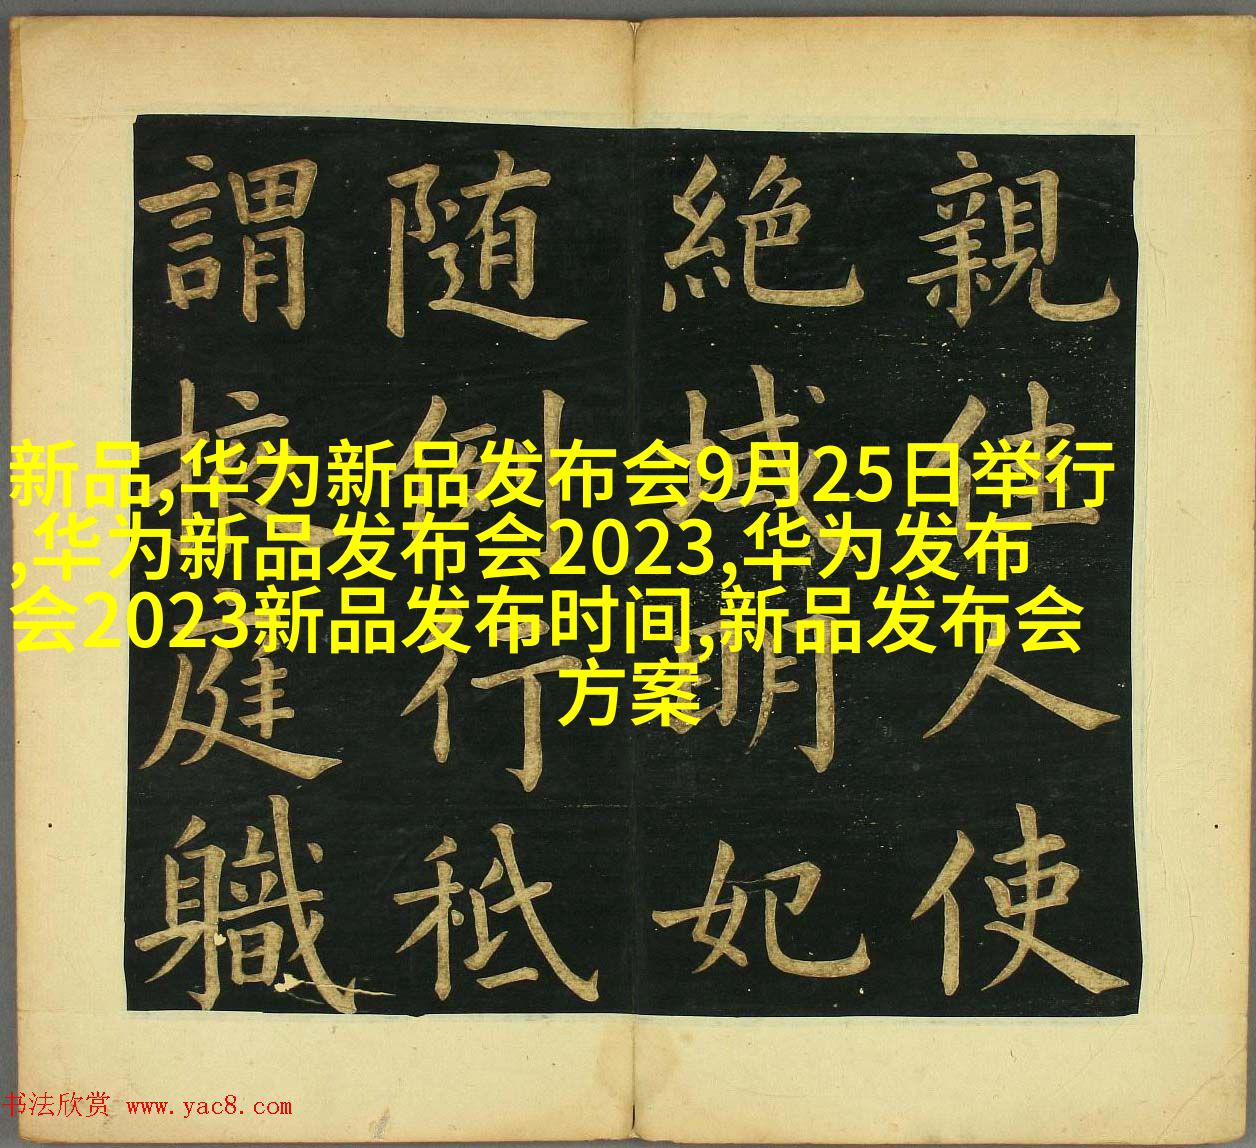 親佳人使
絶域明妃
随例行秪
謂掖庭軄
新品,华为新品发布会9月25日举行
,华为新品发布会2023,华为发布
会2023新品发布时间,新品发布会
方案
书法欣赏 www.yac8.com